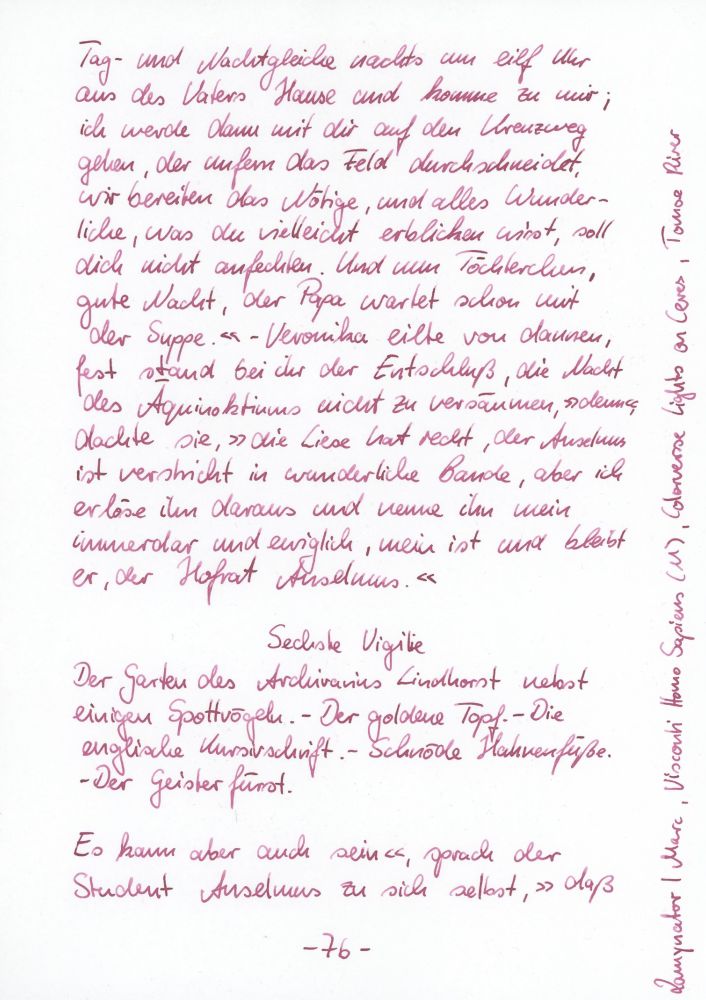 Tag- und Nachtgleiche nachts um eilf Uhr
aus des Vaters Hause und komme zu mir;
ich werde dann mit dir auf den Kreuzweg
gehen, der unfern das Feld durchschneidet,
wir bereiten das Nötige, und alles Wunder-
liche, was du vielleicht erblicken wirst, soll
dich nicht anfechten. Und nun Töchterchen,
gute Nacht, der Papa wartet schon mit
der Suppe.« - Veronika eilte von dannen,
fest stand bei ihr der Entschluß, die Nacht
des Äquinoktiums nicht zu versäumen, »denn«,
dachte sie, »die Liese hat recht, der Anselmus
ist verstrickt in wunderliche Bande, aber ich
erlöse ihn daraus und nenne ihn mein
immerdar und ewiglich, mein ist und bleibt
er, der Hofrat Anselmus.«
Sechste Vigilie
Der Garten des Archivarius Lindhorst nebst
einigen Spottvögeln. - Der goldene Topf. - Die
englische Kursivschrift. - Schnöde Hahnenfüße.
- Der Geisterfürst.
Es kann aber auch sein«, sprach der
Student Anselmus zu sich selbst, »daß
- 76 -
Lamynator | Marc, Visconti Homo Sapiens (M), Colorverse Lights on Ceres, Tomoe River